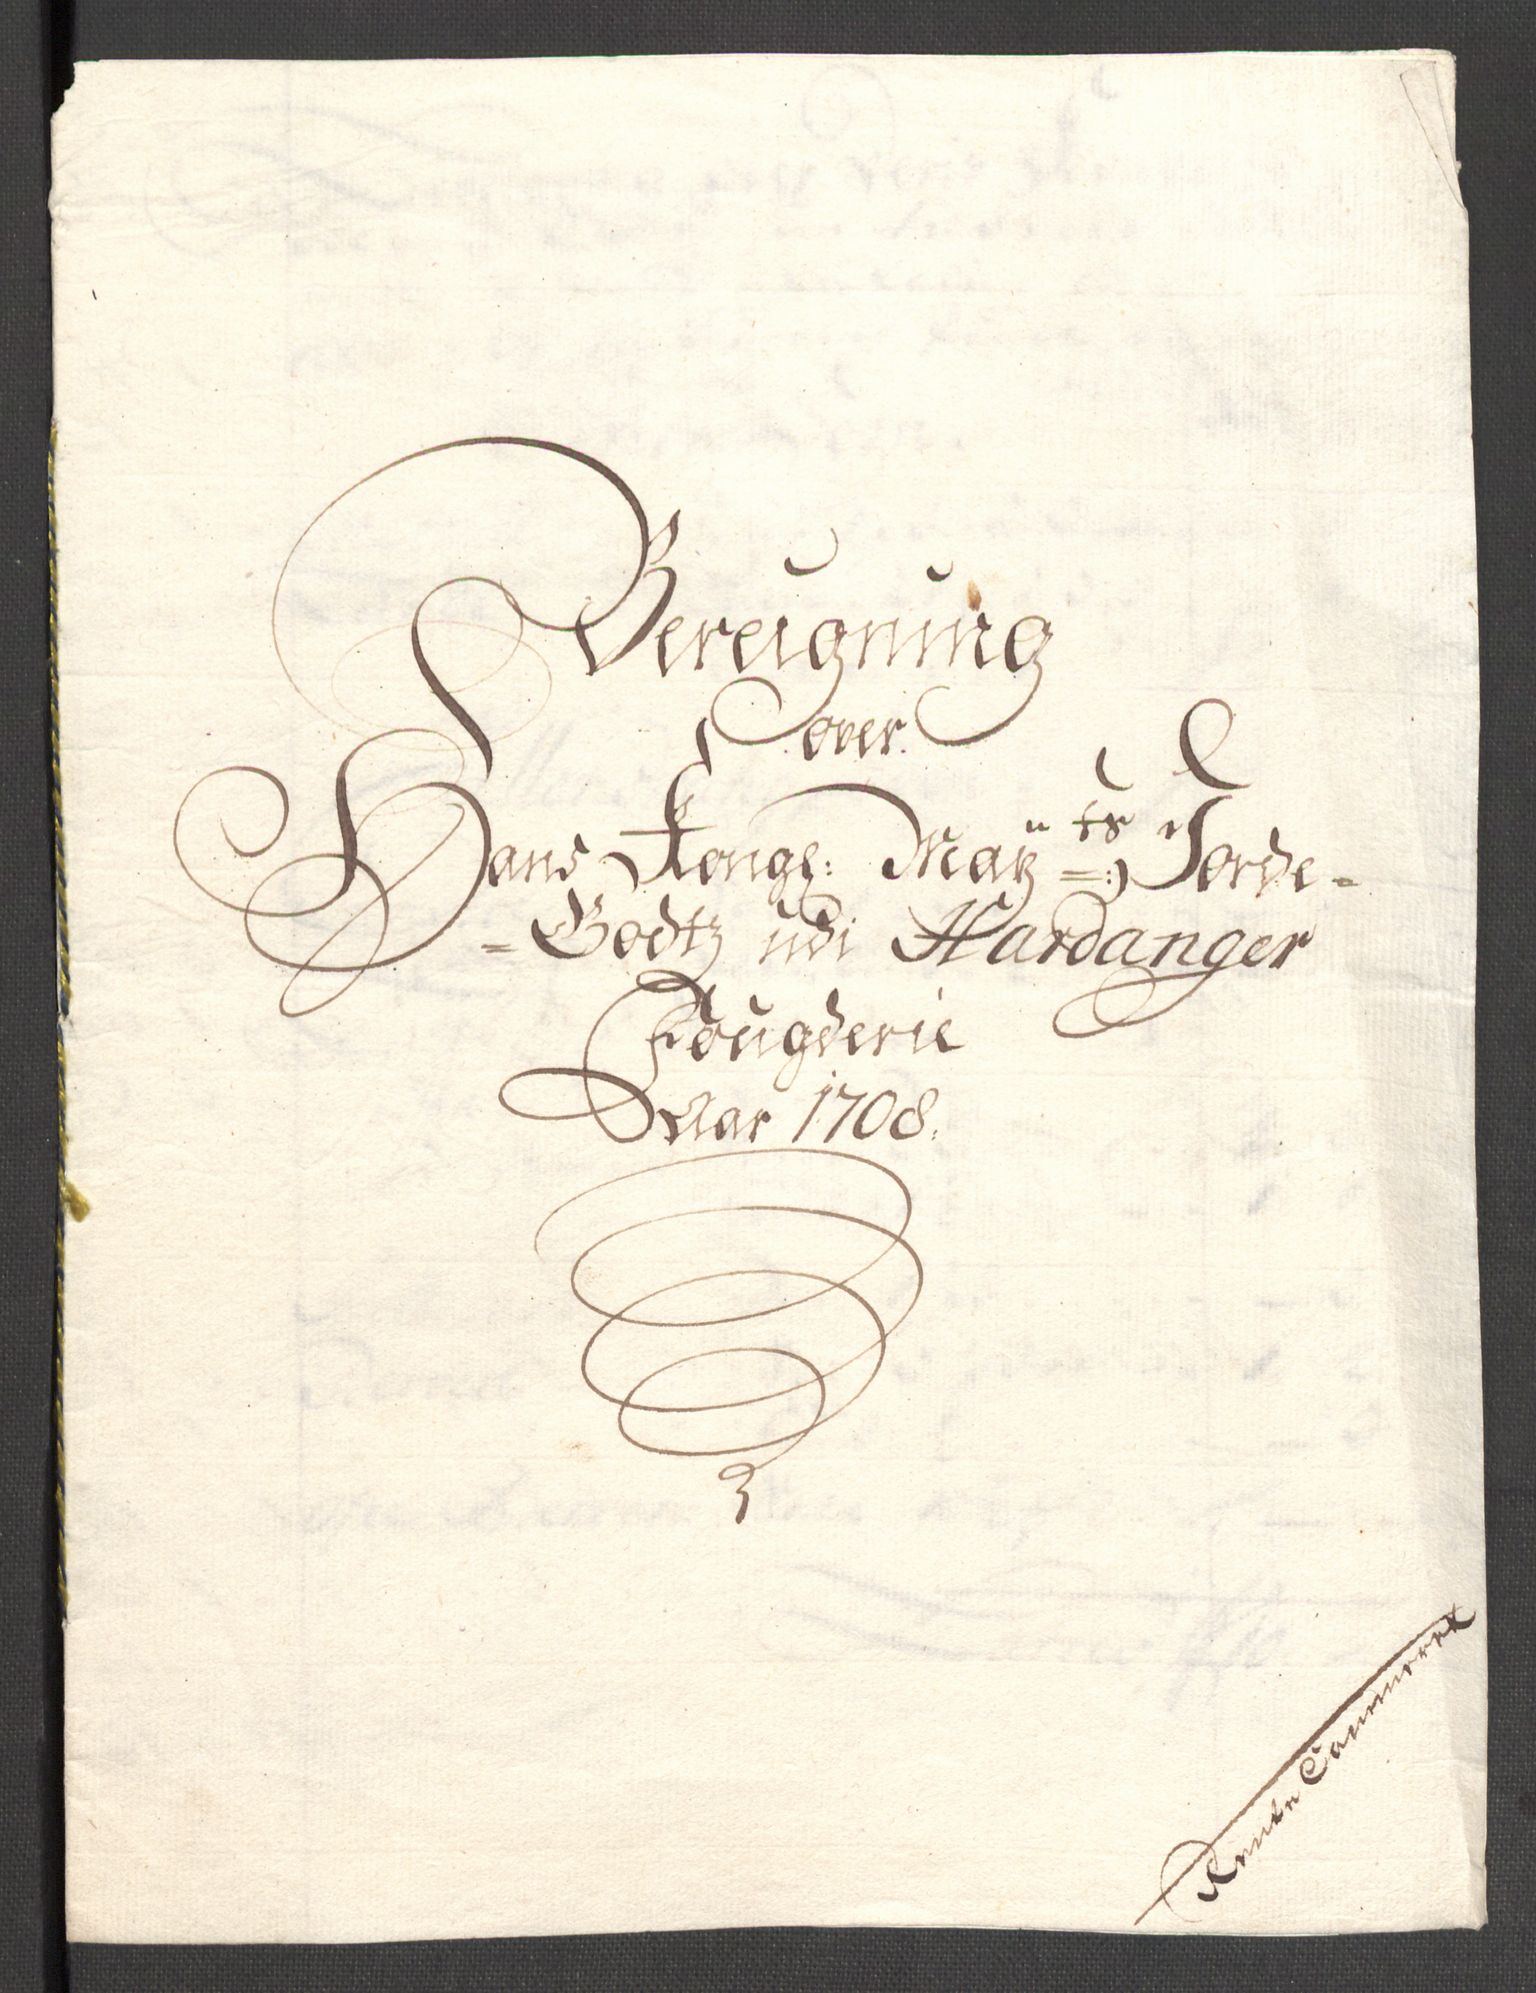 Bereigning
over
Hans Kongl: Maÿts: Jorde-
-Godtz udi Hardanger
Fougderie
Aar 1708.
Rente Cammeret